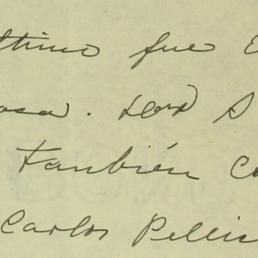 ltimo fue E
osa. Los S
también C
Carlos Pellic